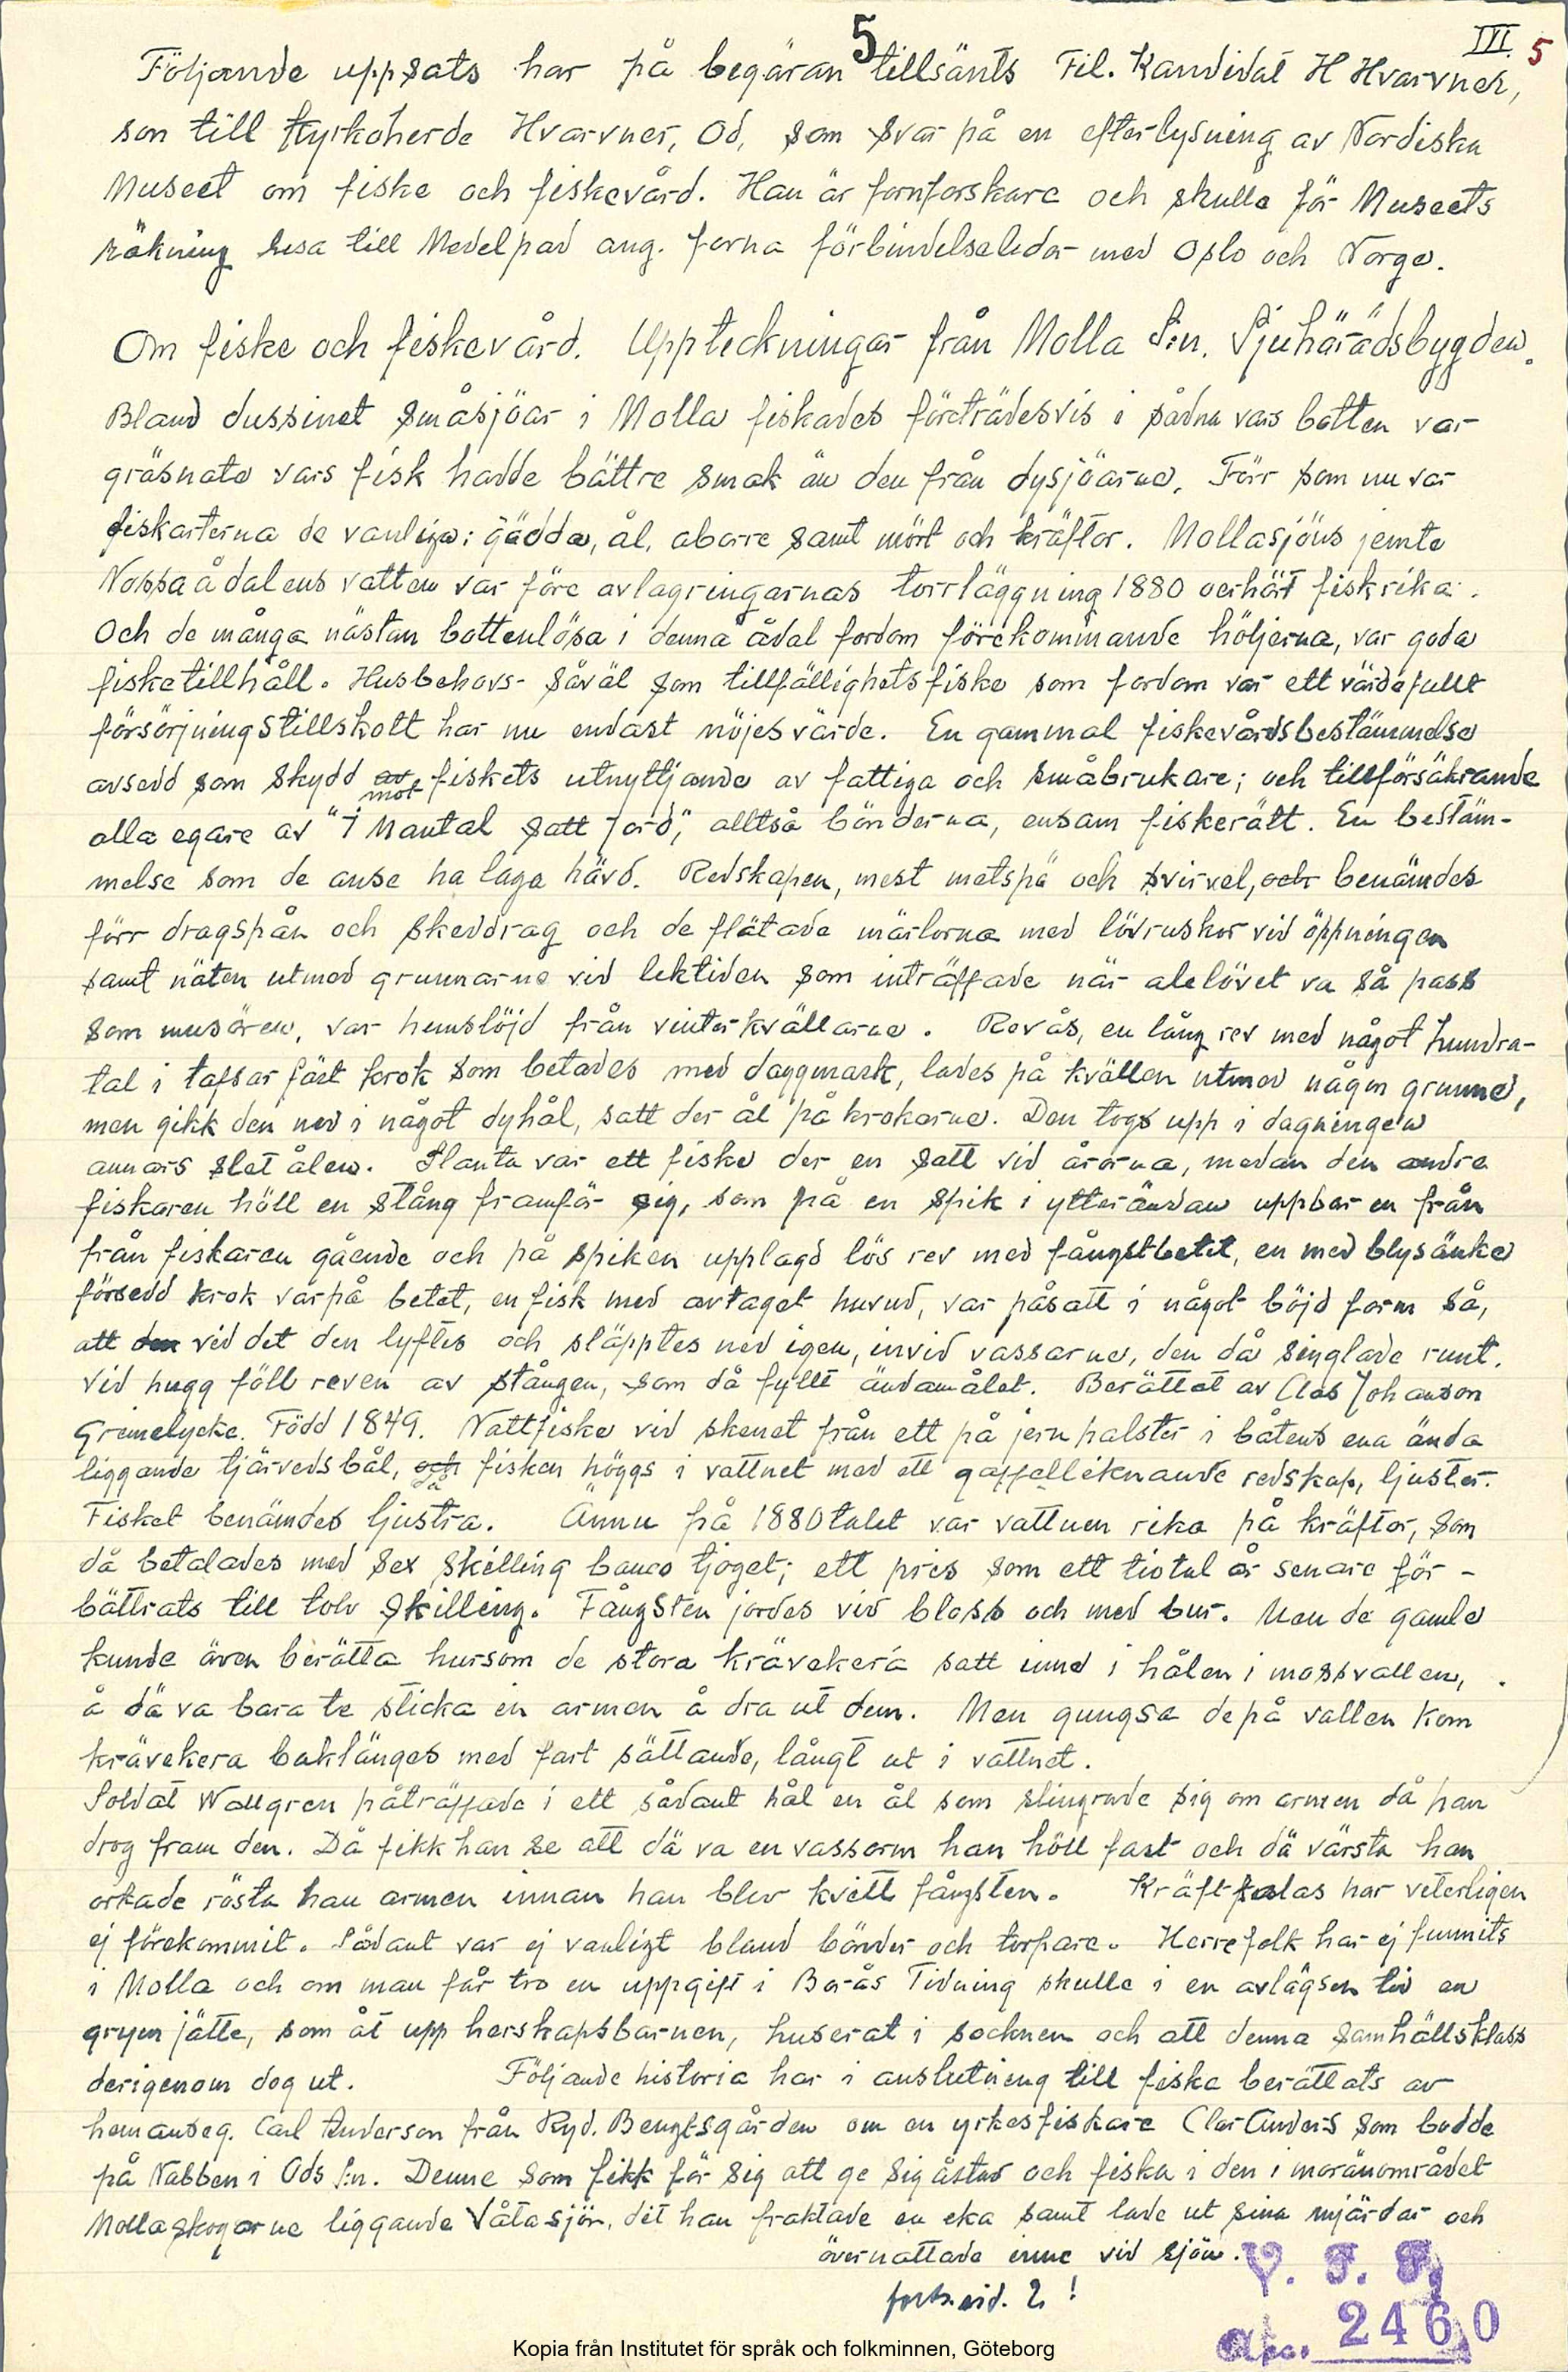 5
III. 5
Följande uppsats har på begäran tillsänts Fil. Kandidat H Hvarvner,
son till Kyrkoherde Hvarvner, Od, som svar på en efterlysning av Nordiska
Museet om fiske och fiskevård. Han är fornforskare och skulle för Museets
räkning resa till Medelpad ang. forna förbindelseleder med Oslo och Norge.
Om fiske och fiskevård. Uppteckningar från Molla S:n. Sjuhäradsbygden.
Bland dussinet småsjöar i Molla fiskades företrädesvis i sådna vars botten var
gräsnate vars fisk hadde bättre smak än den från dysjöarne. Förr som nu var
fiskarterna de vanliga: gädda, ål, aborre samt mört och kräftor. Mollasjöns jemte
Nossaådalens vatten var före avlagringarnas torrläggning 1880 oerhört fiskrika.
Och de många nästan bottenlösa i denna ådal fordom förekommande höljerna, var goda
fisketillhåll. Husbehovs- såväl som tillfällighetsfiske som fordom var ett värdefullt
försörjningstillskott har nu endast nöjesvärde. En gammal fiskevårdsbestämmelse
avsedd som skydd av mot fiskets utnyttjande av fattiga och småbrukare; och tillförsäkrande
alla egare av "i Mantal satt jord", alltså bönderna, ensam fiskerätt. En bestäm-
melse som de anse ha laga hävd. Redskapen, mest metspö och svirvel, och benämdes
förr dragspån och skeddrag och de flätade märlorna med lövruskor vid öppningen
samt näten utmed grunnarne vid lektiden som inträffade när alelövet va så pass
som musören, var hemslöjd från vinterkvällarne. Revås, en lång rev med något hundra-
tal i tafsar fäst krok som betades med daggmask, lades på kvällen utmed någon grunne,
men gikk den ned i något dyhål, satt der ål på krokarne. Den togs upp i dagningen
annars slet ålen. Slanta var ett fiske der en satt vid årorna, medan den andre
fiskaren höll en stång framför sig, som på en spik i ytteränden uppbar en från
från fiskaren gående och på spiken upplagd lös rev med fångstbetet, en med blysänke
försedd krok varpå betet, en fisk med avtaget huvud, var påsatt i något böjd form så,
att den vid det den lyftes och släpptes ned igen, invid vassarne, den då singlade runt.
Vid hugg föll reven av stången, som då fyllt ändamålet. Berättat av Clas Johanson
Grimelycke. Född 1849. Nattfiske vid skenet från ett på jern halster i båtens ena ända
liggande tjärvedsbål, och då fisken höggs i vattnet med ett gaffelliknande redskap, ljuster.
Fisket benämdes ljustra. Ännu på 1880talet var vattnen rika på kräftor, som
då betalades med sex skilling banco tjoget; ett pris som ett tiotal år senare för-
bättrats till tolv skilling. Fångsten jordes vid bloss och med bur. Men de gamle
kunde även berätta hursom de stora krävekera satt inne i hålen i mossvallen,
å dä va bara te sticka in armen å dra ut dem. Men gungsa de på vallen kom
krävekera baklänges med fart sättande, långt ut i vattnet.
Soldat Wallgren påträffade i ett sådant hål en ål som slingrade sig om armen då han
drog fram den. Då fikk han se att dä va en vassorm han höll fast och dä värsta han
orkade rösta han armen innan han blev kvitt fångsten. Kräftkalas har veterligen
ej förekommit. Sådant var ej vanligt bland bönder och torpare. Herrefolk har ej funnits
i Molla och om man får tro en uppgift i Borås Tidning skulle i en avlägsen tid en
grym jätte, som åt upp herskapsbarnen, huserat i socknen och att denna samhällsklass
derigenom dog ut. Följande historia har i anslutning till fiske berättats av
hemanseg. Carl Anderson från Ryd. Bengtsgården om en yrkesfiskare Clar Anders som bodde
på Nabben i Ods S:n. Denne som fikk för sig att ge sig åstad och fiska i den i moränområdet
Mollaskogarne liggande Våtasjön, dit han fraktade en eka samt lade ut sina mjärdar och
övernattade inne vid sjön.
forts. sid. 2!
V. F. F.
acc. 2460
Kopia från Institutet för språk och folkminnen, Göteborg